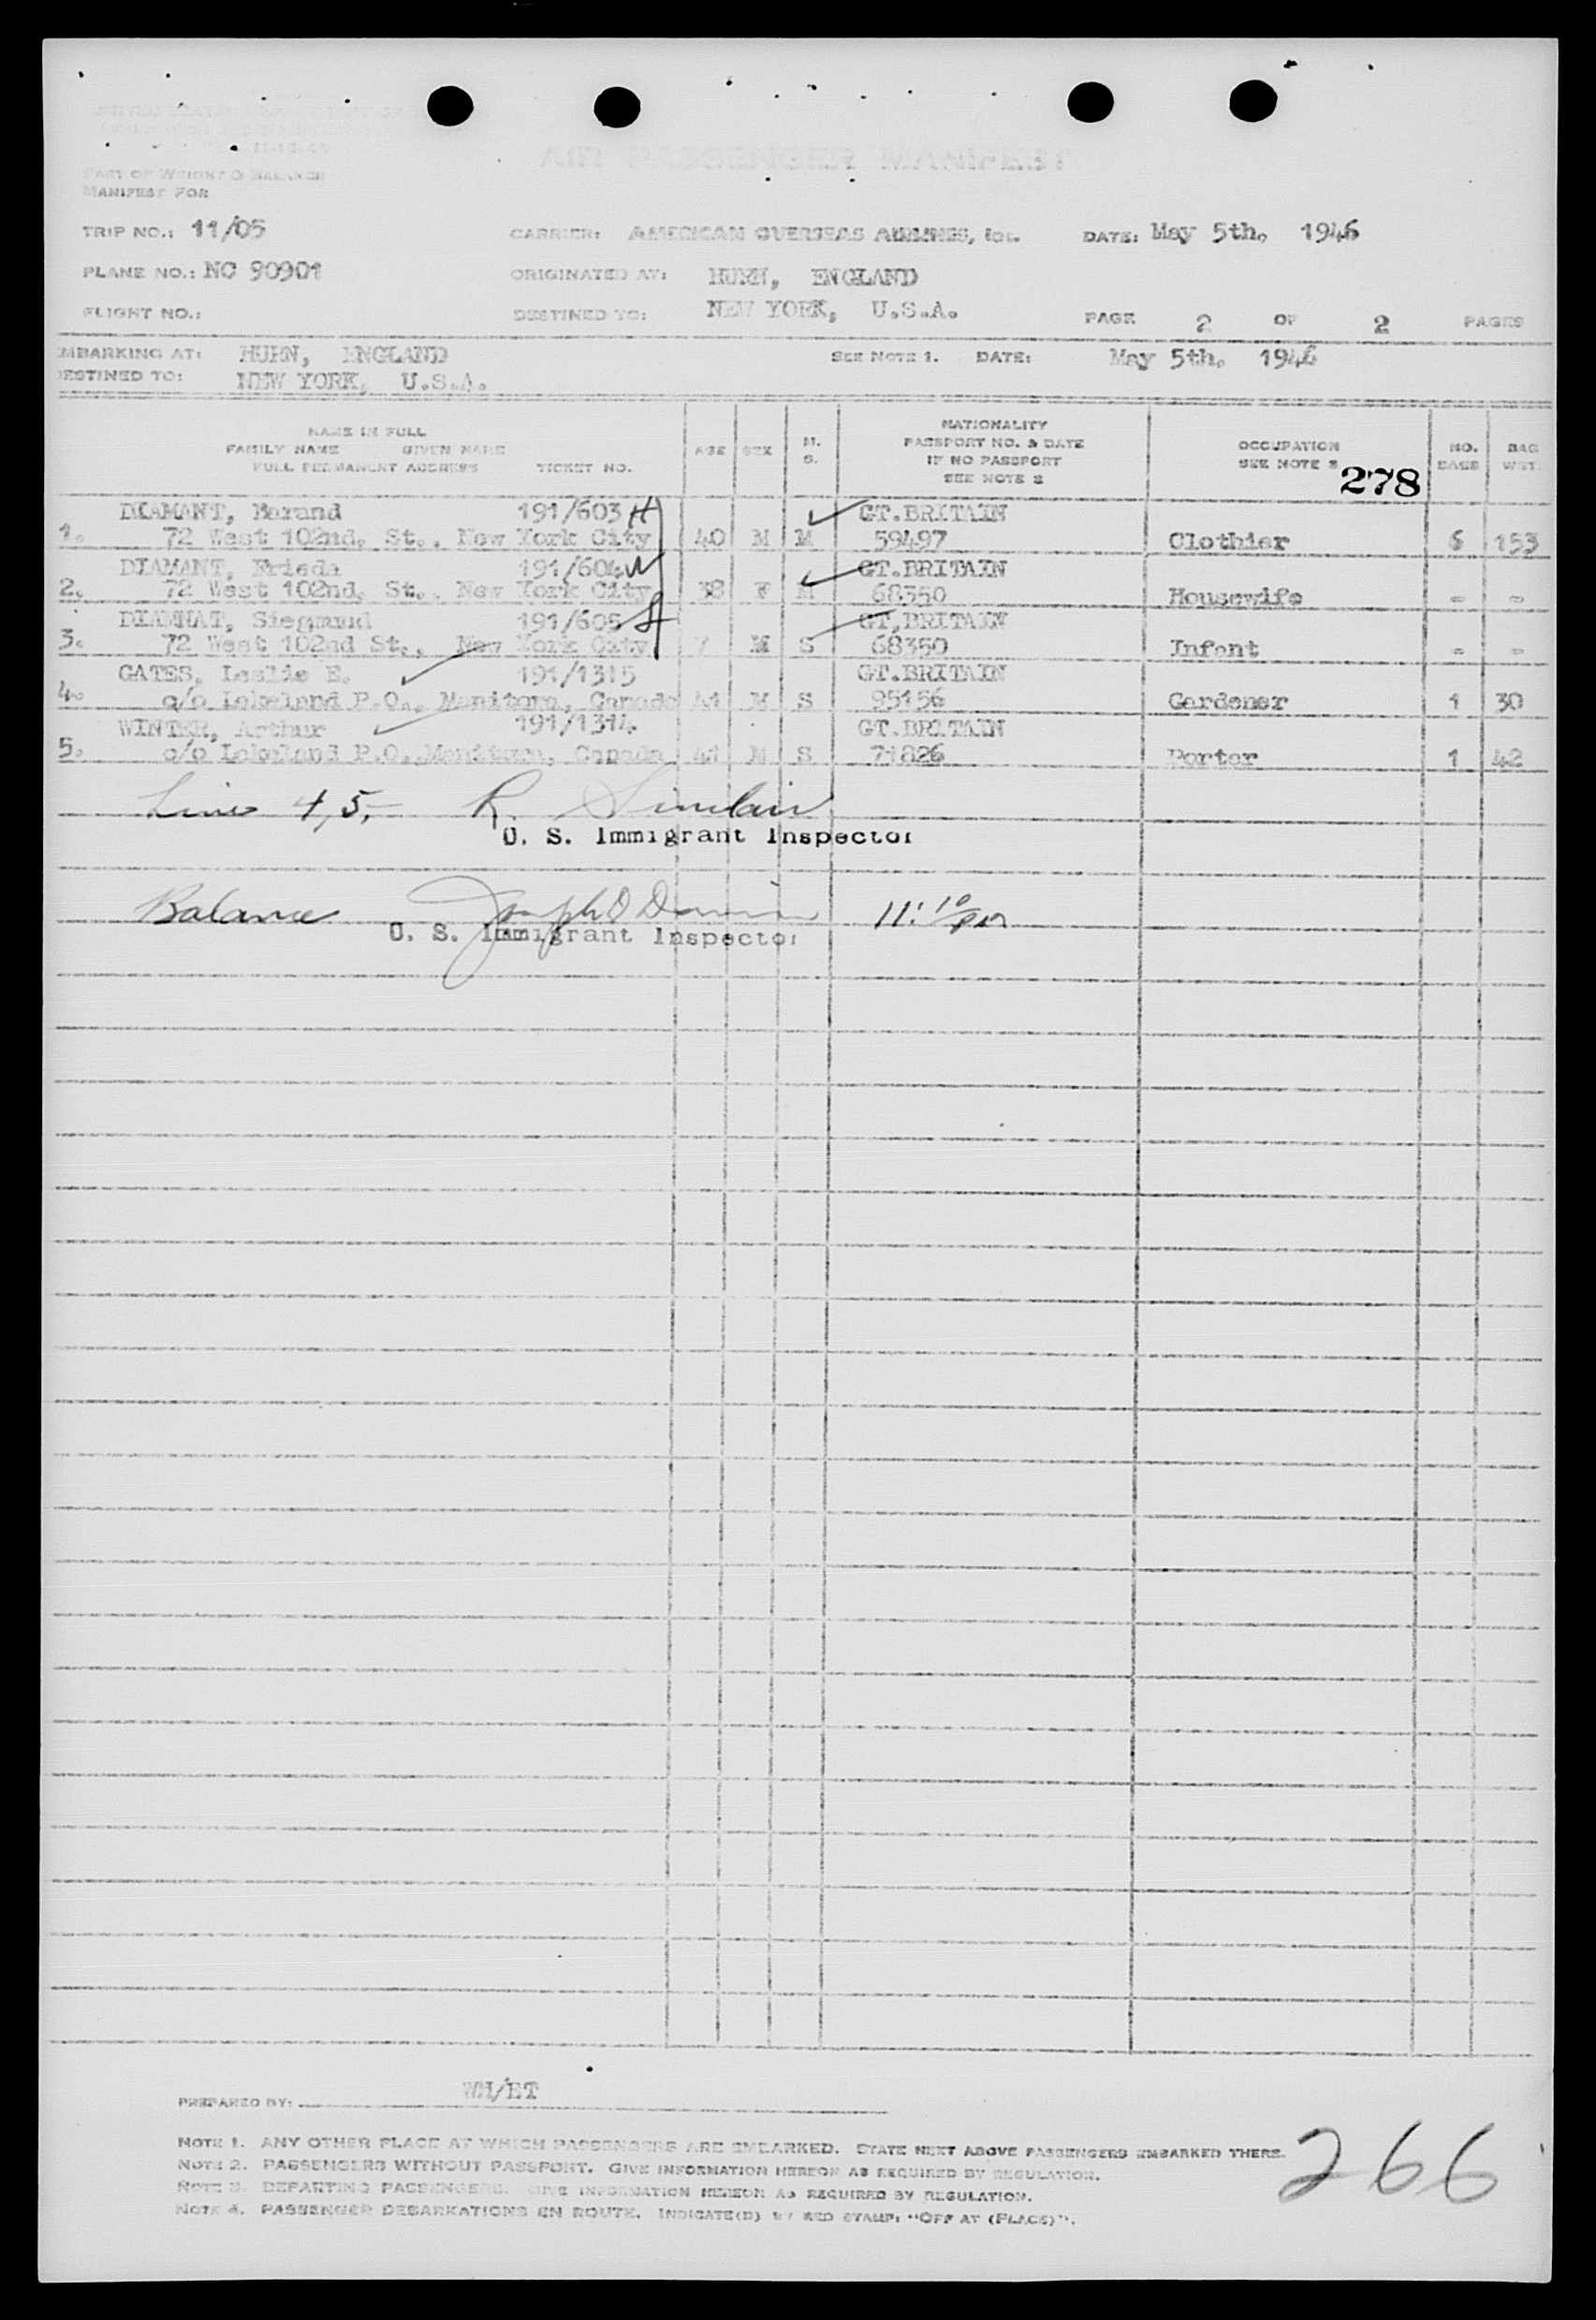 AIR PASSENGER MANIFEST
PART OF WEIGHT & BALANCE
MANIFEST FOR
TRIP NO.: 11/05 CARRIER: AMERICAN OVERSEAS AIRLINES, Inc. DATE: May 5th, 1946
PLANE NO.: NC 90901 ORIGINATED AT: HURN, ENGLAND
FLIGHT NO.: DESTINED TO: NEW YORK, U.S.A. PAGE 2 OF 2 PAGES
EMBARKING AT: HURN, ENGLAND SEE NOTE 1. DATE: May 5th, 1946
DESTINED TO: NEW YORK, U.S.A.
NAME IN FULL
FAMILY NAME GIVEN NAME
FULL PERMANENT ADDRESS TICKET NO. AGE SEX M. S. NATIONALITY PASSPORT NO. & DATE IF NO PASSPORT SEE NOTE 2 OCCUPATION SEE NOTE 3 NO. BAGS BAG WGT.
278
DIAMANT, 191/603 GT.BRITAIN
1. 72 West 102nd, St., New York City 40 M M 59497 Clothier 6 153
DIAMANT, Frieda 191/604 GT.BRITAIN
2. 72 West 102nd, St., New York City 38 F M 68350 Housewife - -
DIAMNAT, Siegmund 191/605 GT,BRITAIN
3. 72 West 102nd St., New York City 7 M S 68350 Infant - -
GATES, Leslie E. 191/1315 GT.BRITAIN
4. c/o Lakeland P.O., Manitova, Canada 41 M S 95156 Gardener 1 30
WINTER, Arthur 191/1314 GT.BRITAIN
5. c/o Lakeland P.O., Canada 41 M S 71826 Porter 1 42
Lines 4, 5, R. Sinclair
U. S. Immigrant Inspector
Balance Joseph D 11:10 pm
U. S. Immigrant Inspector
PREPARED BY: WM/ET
NOTE 1. ANY OTHER PLACE AT WHICH PASSENGERS ARE EMBARKED. STATE NEXT ABOVE PASSENGERS EMBARKED THERE.
NOTE 2. PASSENGERS WITHOUT PASSPORT. GIVE INFORMATION HEREON AS REQUIRED BY REGULATION.
NOTE 3. DEPARTING PASSENGERS. GIVE INFORMATION HEREON AS REQUIRED BY REGULATION.
NOTE 4. PASSENGER DEBARKATIONS EN ROUTE. INDICATE(D) BY RED STAMP: "OFF AT (PLACE)".
266